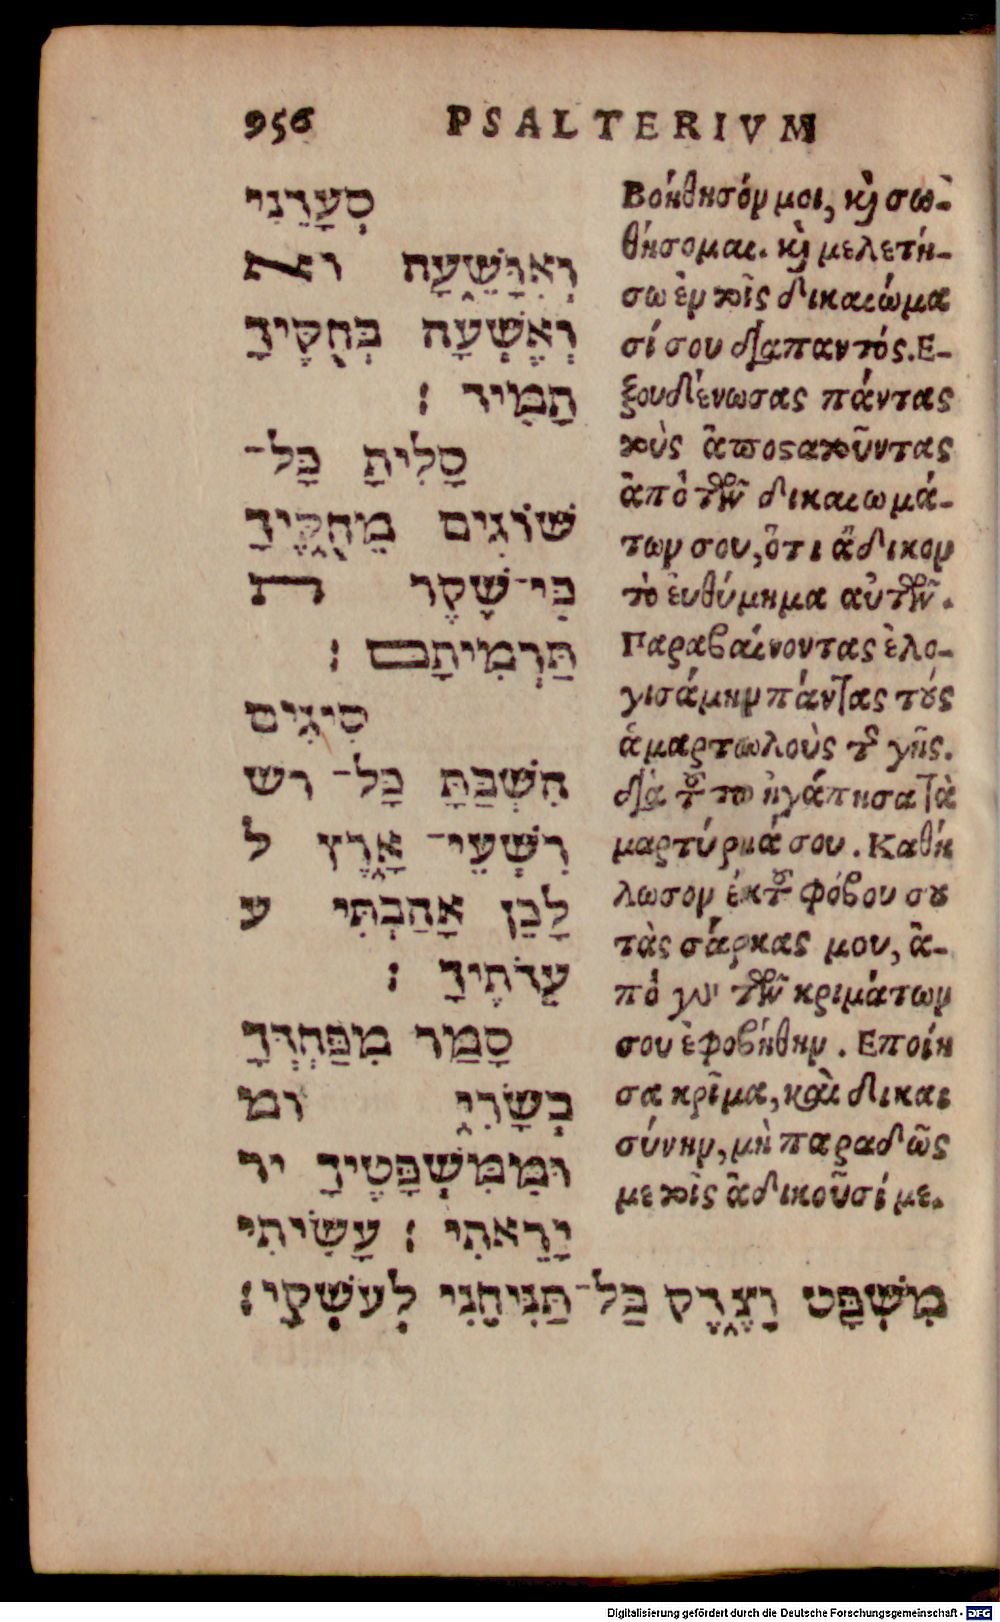 956 PSALTERIVM
סְעָדֵנִי
וְאִוָּשֵׁעָה וא
וְאֶשְׁעָה בְּחֻקֶּיךָ
תָמִיד׃
סָלִיתָ כָּל־
שׁוֹגִים מֵחֻקֶּיךָ
כִּי־שֶׁקֶר ת
תַּרְמִיתָם׃
סִיגִים
הִשְׁבַּתָּ כָל־ רש
רִשְׁעֵי־ אָרֶץ ל
לָכֵן אָהַבְתִּי ע
עֵדֹתֶיךָ׃
סָמַר מִפַּחְדְּךָ
בְשָׂרִי ומ
וּמִמִּשְׁפָּטֶיךָ יר
יָרֵאתִי׃ עָשִׂיתִי
מִשְׁפָּט וָצֶדֶק בַּל־תַּנִּיחֵנִי לְעֹשְׁקָי׃
Βοήθησόν μοι, καὶ σω-
θήσομαι. καὶ μελετή-
σω ἐν τοῖς δικαιώμα
σί σου διαπαντός. Ε-
ξουδένωσας πάντας
τοὺς ἀποστατοῦντας
ἀπὸ τῶν δικαιωμά-
των σου, ὅτι ἄδικον
τὸ ἐνθύμημα αὐτῶν.
Παραβαίνοντας ἐλο-
γισάμην πάντας τοὺς
ἁμαρτωλοὺς τῆς γῆς.
διὰ τοῦτο ἠγάπησα τὰ
μαρτύριά σου. Καθή
λωσον ἐκ τοῦ φόβου σου
τὰς σάρκας μου, ἀ-
πὸ γὰρ τῶν κριμάτων
σου ἐφοβήθην. Εποίη
σα κρῖμα, καὶ δικαι
σύνην, μὴ παραδῶς
με τοῖς ἀδικοῦσί με.
Digitalisierung gefördert durch die Deutsche Forschungsgemeinschaft - DFG